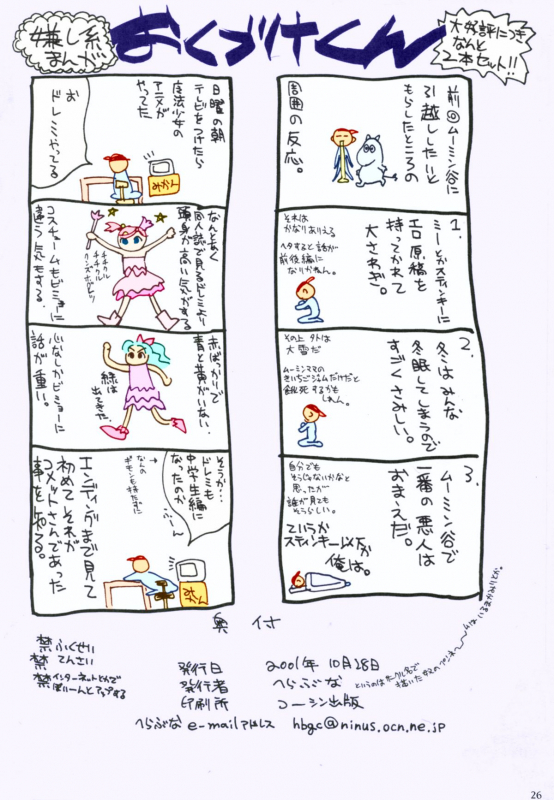 嫌し系
まんが
おくづけくん
大好評につき
なんと
2本セット!!
前回ムーミン谷に
引越ししたいと
もらしたところの
周囲の反応。
1.
ミーとかスティンキーに
エロ原稿を
持ってかれて
大さわぎ。
それは
かなりありえる
ヘタすると話が
前後編に
なりかねん。
2.
冬はみんな
冬眠してしまうので
すごくさみしい。
その上外は
大雪だ
ムーミンママの
きいちごジャムだけだと
餓死するかも
しれん。
3.
ムーミン谷で
一番の悪人は
おまえだ。
自分でも
そうじゃないかなと
思ったが
誰が見ても
そうらしい。
ていうか
スティンキー以下か
俺は。
日曜の朝
テレビをつけたら
魔法少女の
アニメが
やってた
お
ドレミやってる
みかん
なんとなく
同人誌で見るドレミより
頭身が高い気がする
コスチュームもビミョーに
違う気もする。
赤ばっかりで
青と黄がいない。
緑は
出てきた。
心なしかビミョーに
話が重い。
そうか…
ドレミも
中学生編に
なったのか
ふーん
なんの
ギモンも持たずに
→
みかん
エンディングまで見て
初めてそれが
コメットさんであった
事を知る。
奥付
禁ふくせい
禁てんさい
禁インターネットとかで
ばいーんとアップする
発行日 2001年10月28日
発行者 へらぶな
印刷所 コーシン出版
へらぶな e-mailアドレス hbgc@ninus.ocn.ne.jp
26